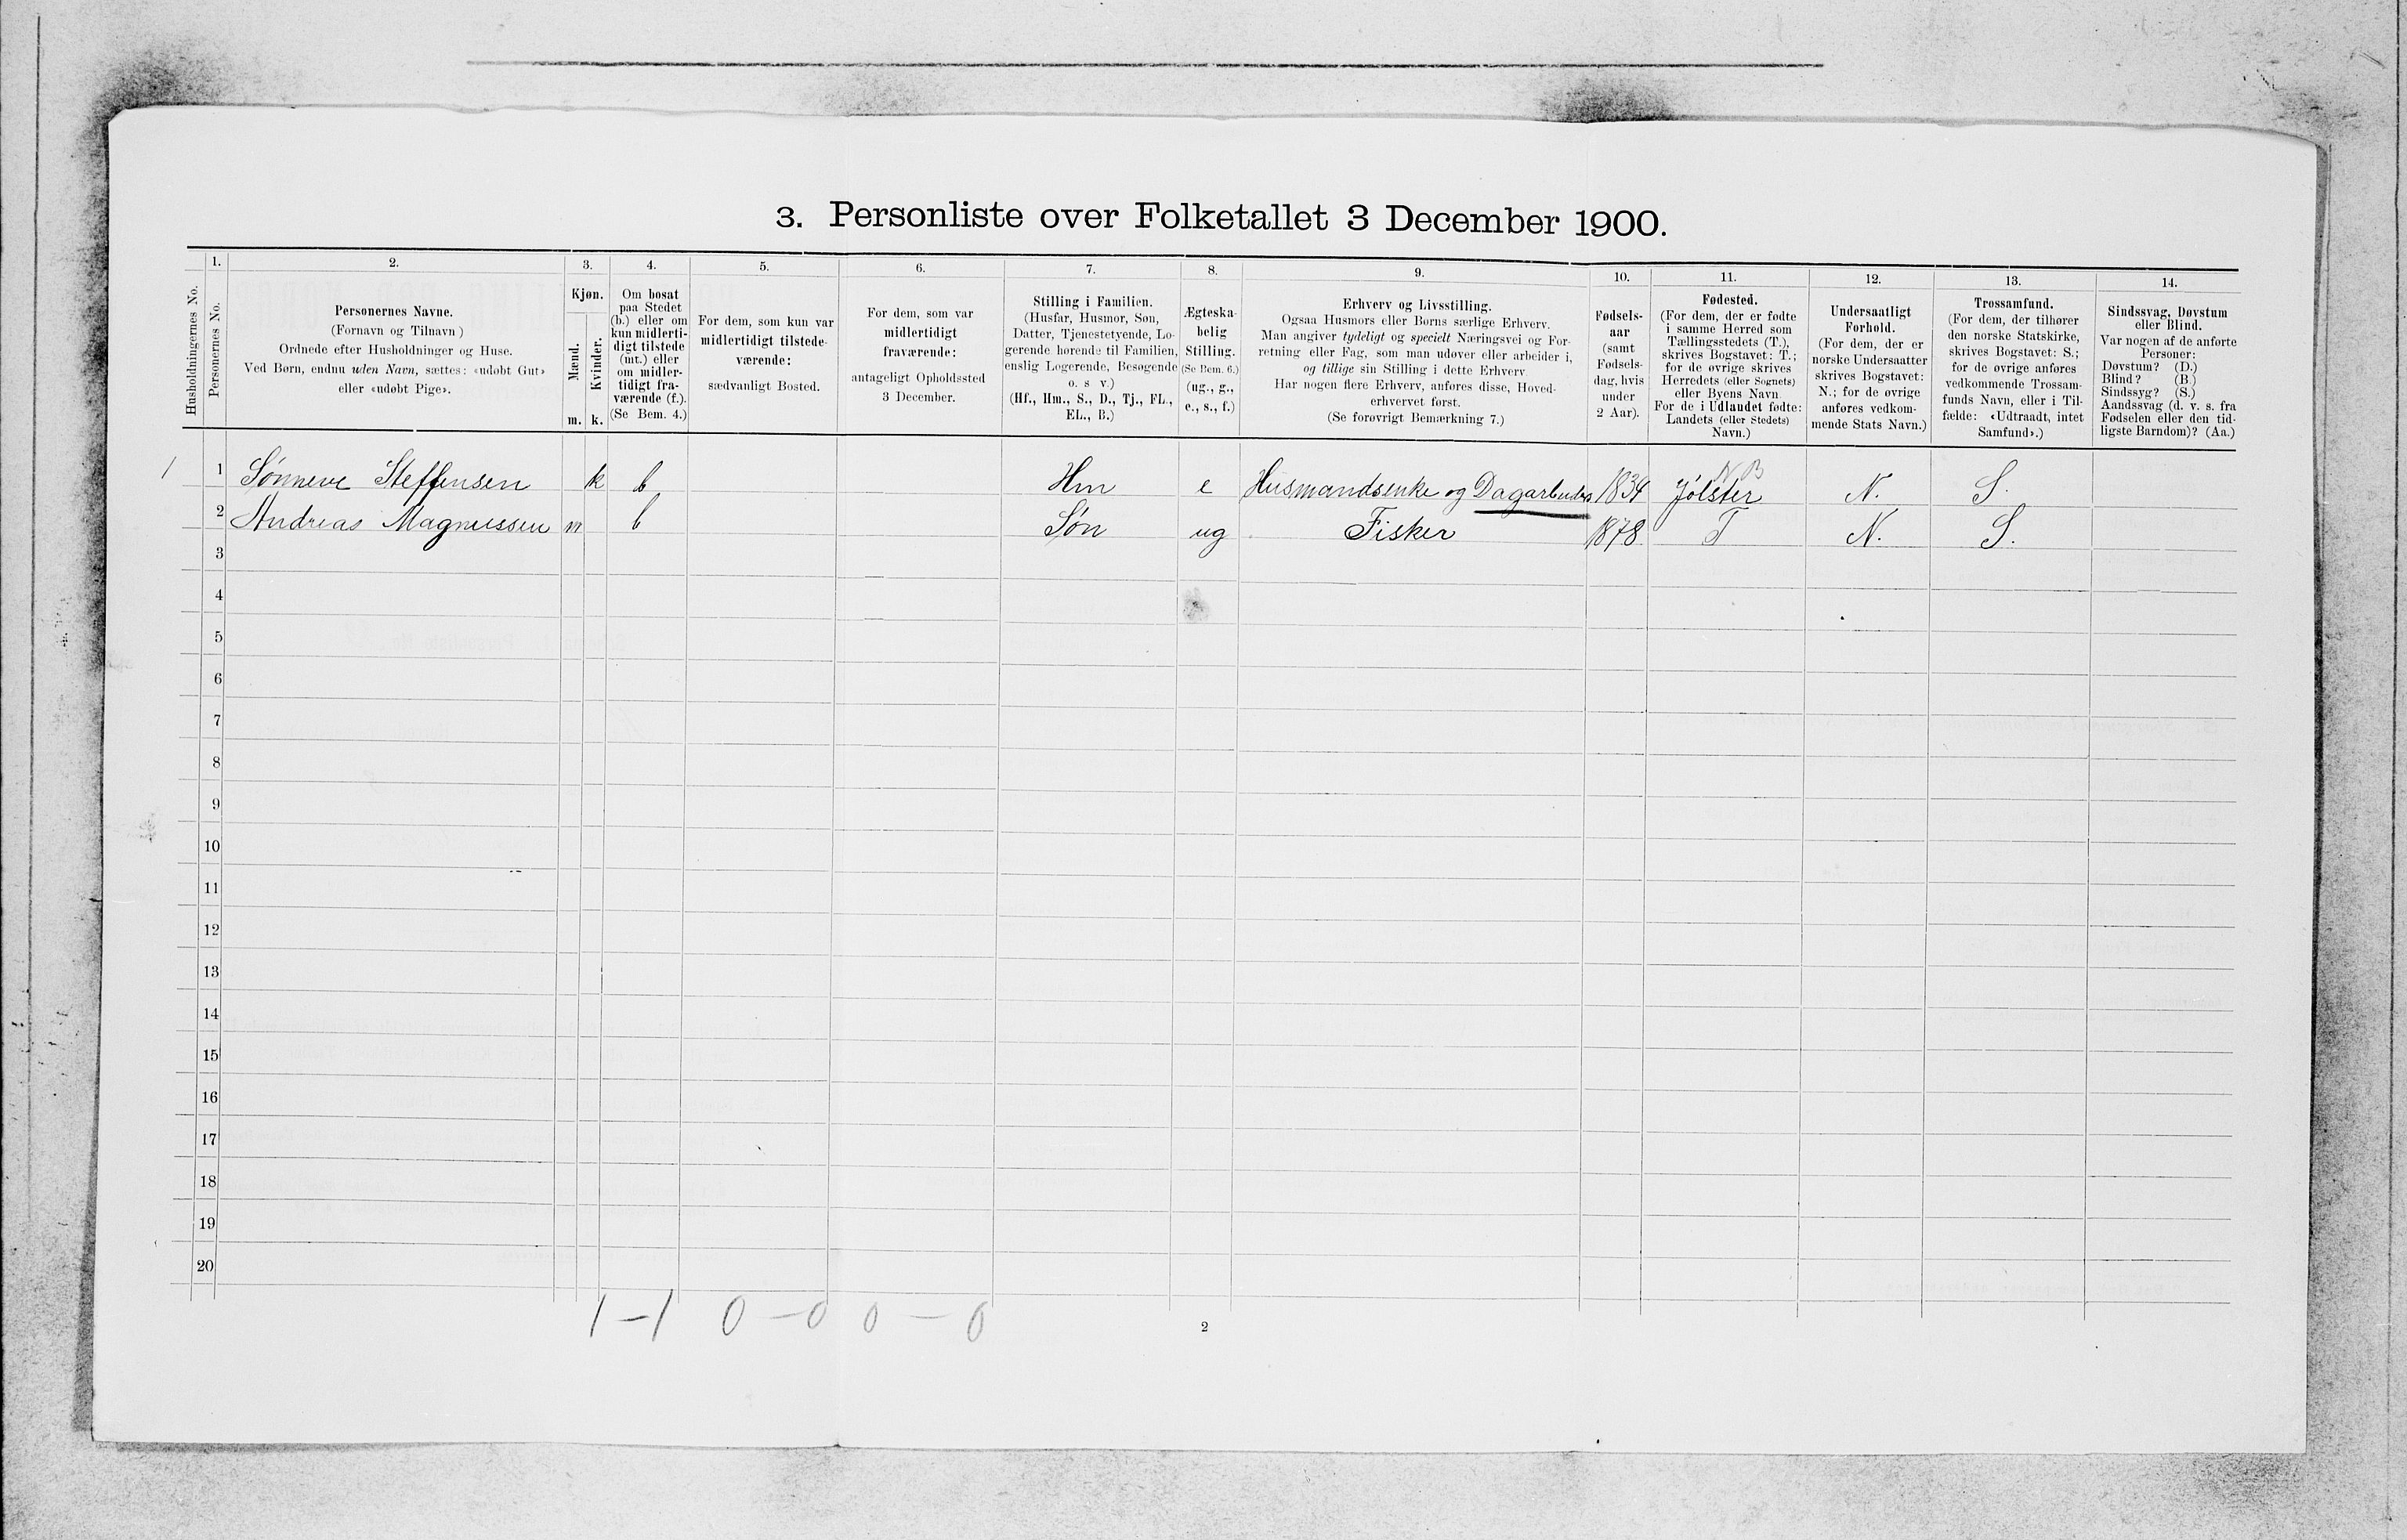 3. Personliste over Folketallet 3 December 1900.
Husholdningernes No.
1.
Personernes No.
2.
Personernes Navne.
(Fornavn og Tilnavn)
Ordnede efter Husholdninger og Huse.
Ved Børn, endnu uden Navn, sættes: «udøbt Gut»
eller «udøbt Pige».
3.
Kjøn.
Mænd.
Kvinder.
m. k.
4.
Om bosat
paa Stedet
(b.) eller om
kun midlerti-
digt tilstede
(mt.) eller
om midler-
tidigt fra-
værende (f.).
(Se Bem. 4.)
5.
For dem, som kun var
midlertidigt tilstede-
værende:
sædvanligt Bosted.
6.
For dem, som var
midlertidigt
fraværende:
antageligt Opholdssted
3 December.
7.
Stilling i Familien.
(Husfar, Husmor, Søn,
Datter, Tjenestetyende, Lo-
gerende hørende til Familien,
enslig Logerende, Besøgende
o. s v.)
(Hf., Hm., S., D., Tj., FL.,
EL., B.)
8.
Ægteska-
belig
Stilling.
(Se Bem. 6.)
(ug., g.,
e., s., f.)
9.
Erhverv og Livsstilling.
Ogsaa Husmors eller Børns særlige Erhverv.
Man angiver tydeligt og specielt Næringsvei og For-
retning eller Fag, som man udøver eller arbeider i,
og tillige sin Stilling i dette Erhverv.
Har nogen flere Erhverv, anføres disse, Hoved-
erhvervet først.
(Se forøvrigt Bemærkning 7.)
10.
Fødsels-
aar
(samt
Fødsels-
dag, hvis
under
2 Aar).
11.
Fødested.
(For dem, der er fødte
i samme Herred som
Tællingsstedets (T.),
skrives Bogstavet: T.;
for de øvrige skrives
Herredets (eller Sognets)
eller Byens Navn.
For de i Udlandet fødte:
Landets (eller Stedets)
Navn.)
12.
Undersaatligt
Forhold.
(For dem, der er
norske Undersaatter
skrives Bogstavet:
N.; for de øvrige
anføres vedkom-
mende Stats Navn.)
13.
Trossamfund.
(For dem, der tilhører
den norske Statskirke,
skrives Bogstavet: S.;
for de øvrige anføres
vedkommende Trossam-
funds Navn, eller i Til-
fælde: «Udtraadt, intet
Samfund».)
14.
Sindssvag, Døvstum
eller Blind.
Var nogen af de anførte
Personer:
Døvstum? (D.)
Blind? (B.)
Sindssyg? (S.)
Aandssvag (d. v. s. fra
Fødselen eller den tid-
ligste Barndom)? (Aa.)
N B
1 1 Sönneve Steffensen k b Hm e Husmandsenke og Dagarbeider 1834 Jölster N. S.
2 Andreas Magnussen m b Søn ug Fisker 1878 T N. S.
3
4
5
6
7
8
9
10
11
12
13
14
15
16
17
18
19
20
1 - 1 0 - 0 0 - 0
2